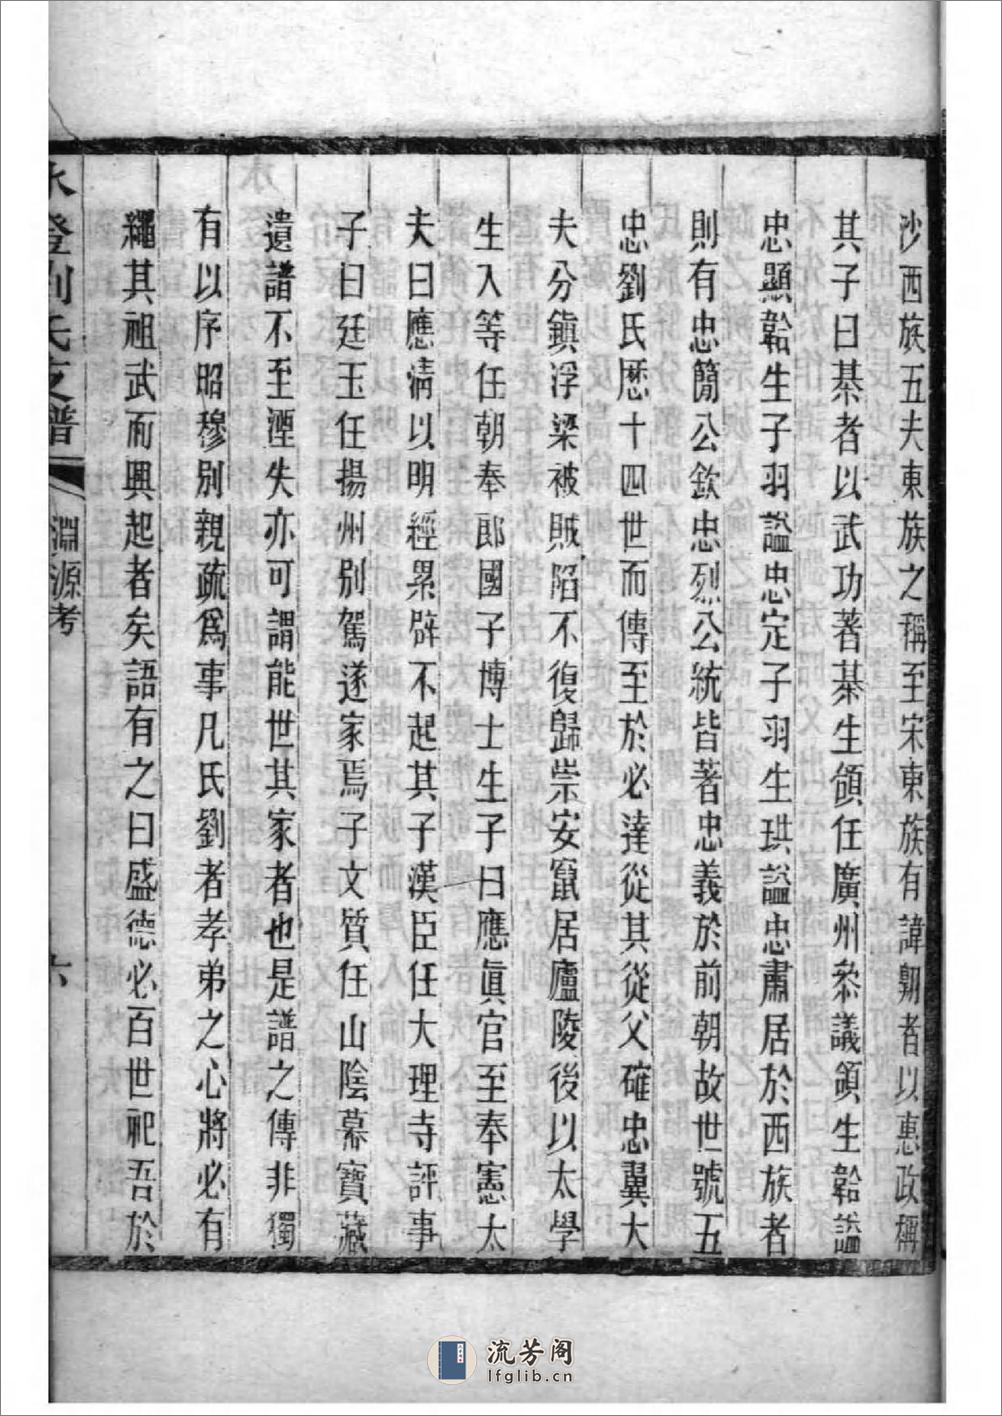 沙西族五夫東族之稱至宋東族有諱翺者以惠政稱
其子曰棊者以武功著棊生領任廣州叅議領生韐謚
忠顯韐生子羽謚忠定子羽生珙謚忠肅居於西族者
則有忠簡公欽忠烈公統皆著忠義於前朝故世號五
忠劉氏歷十四世而傳至於必達從其從父確忠翼大
夫分鎮浮梁被賊陷不復歸崇安竄居廬陵後以太學
生入等任朝奉郎國子博士生子曰應眞官至奉憲太
夫曰應清以明經累辟不起其子漢臣任大理寺評事
子曰廷玉任揚州別駕遂家焉子文質任山陰幕寶藏
遺譜不至湮失亦可謂能世其家者也是譜之傳非獨
有以序昭穆別親疏爲事凡氏劉者孝弟之心將必有
繩其祖武而興起者矣語有之曰盛德必百世祀吾於
水澄劉氏支譜 淵源考 六
流芳阁
lfglib.cn